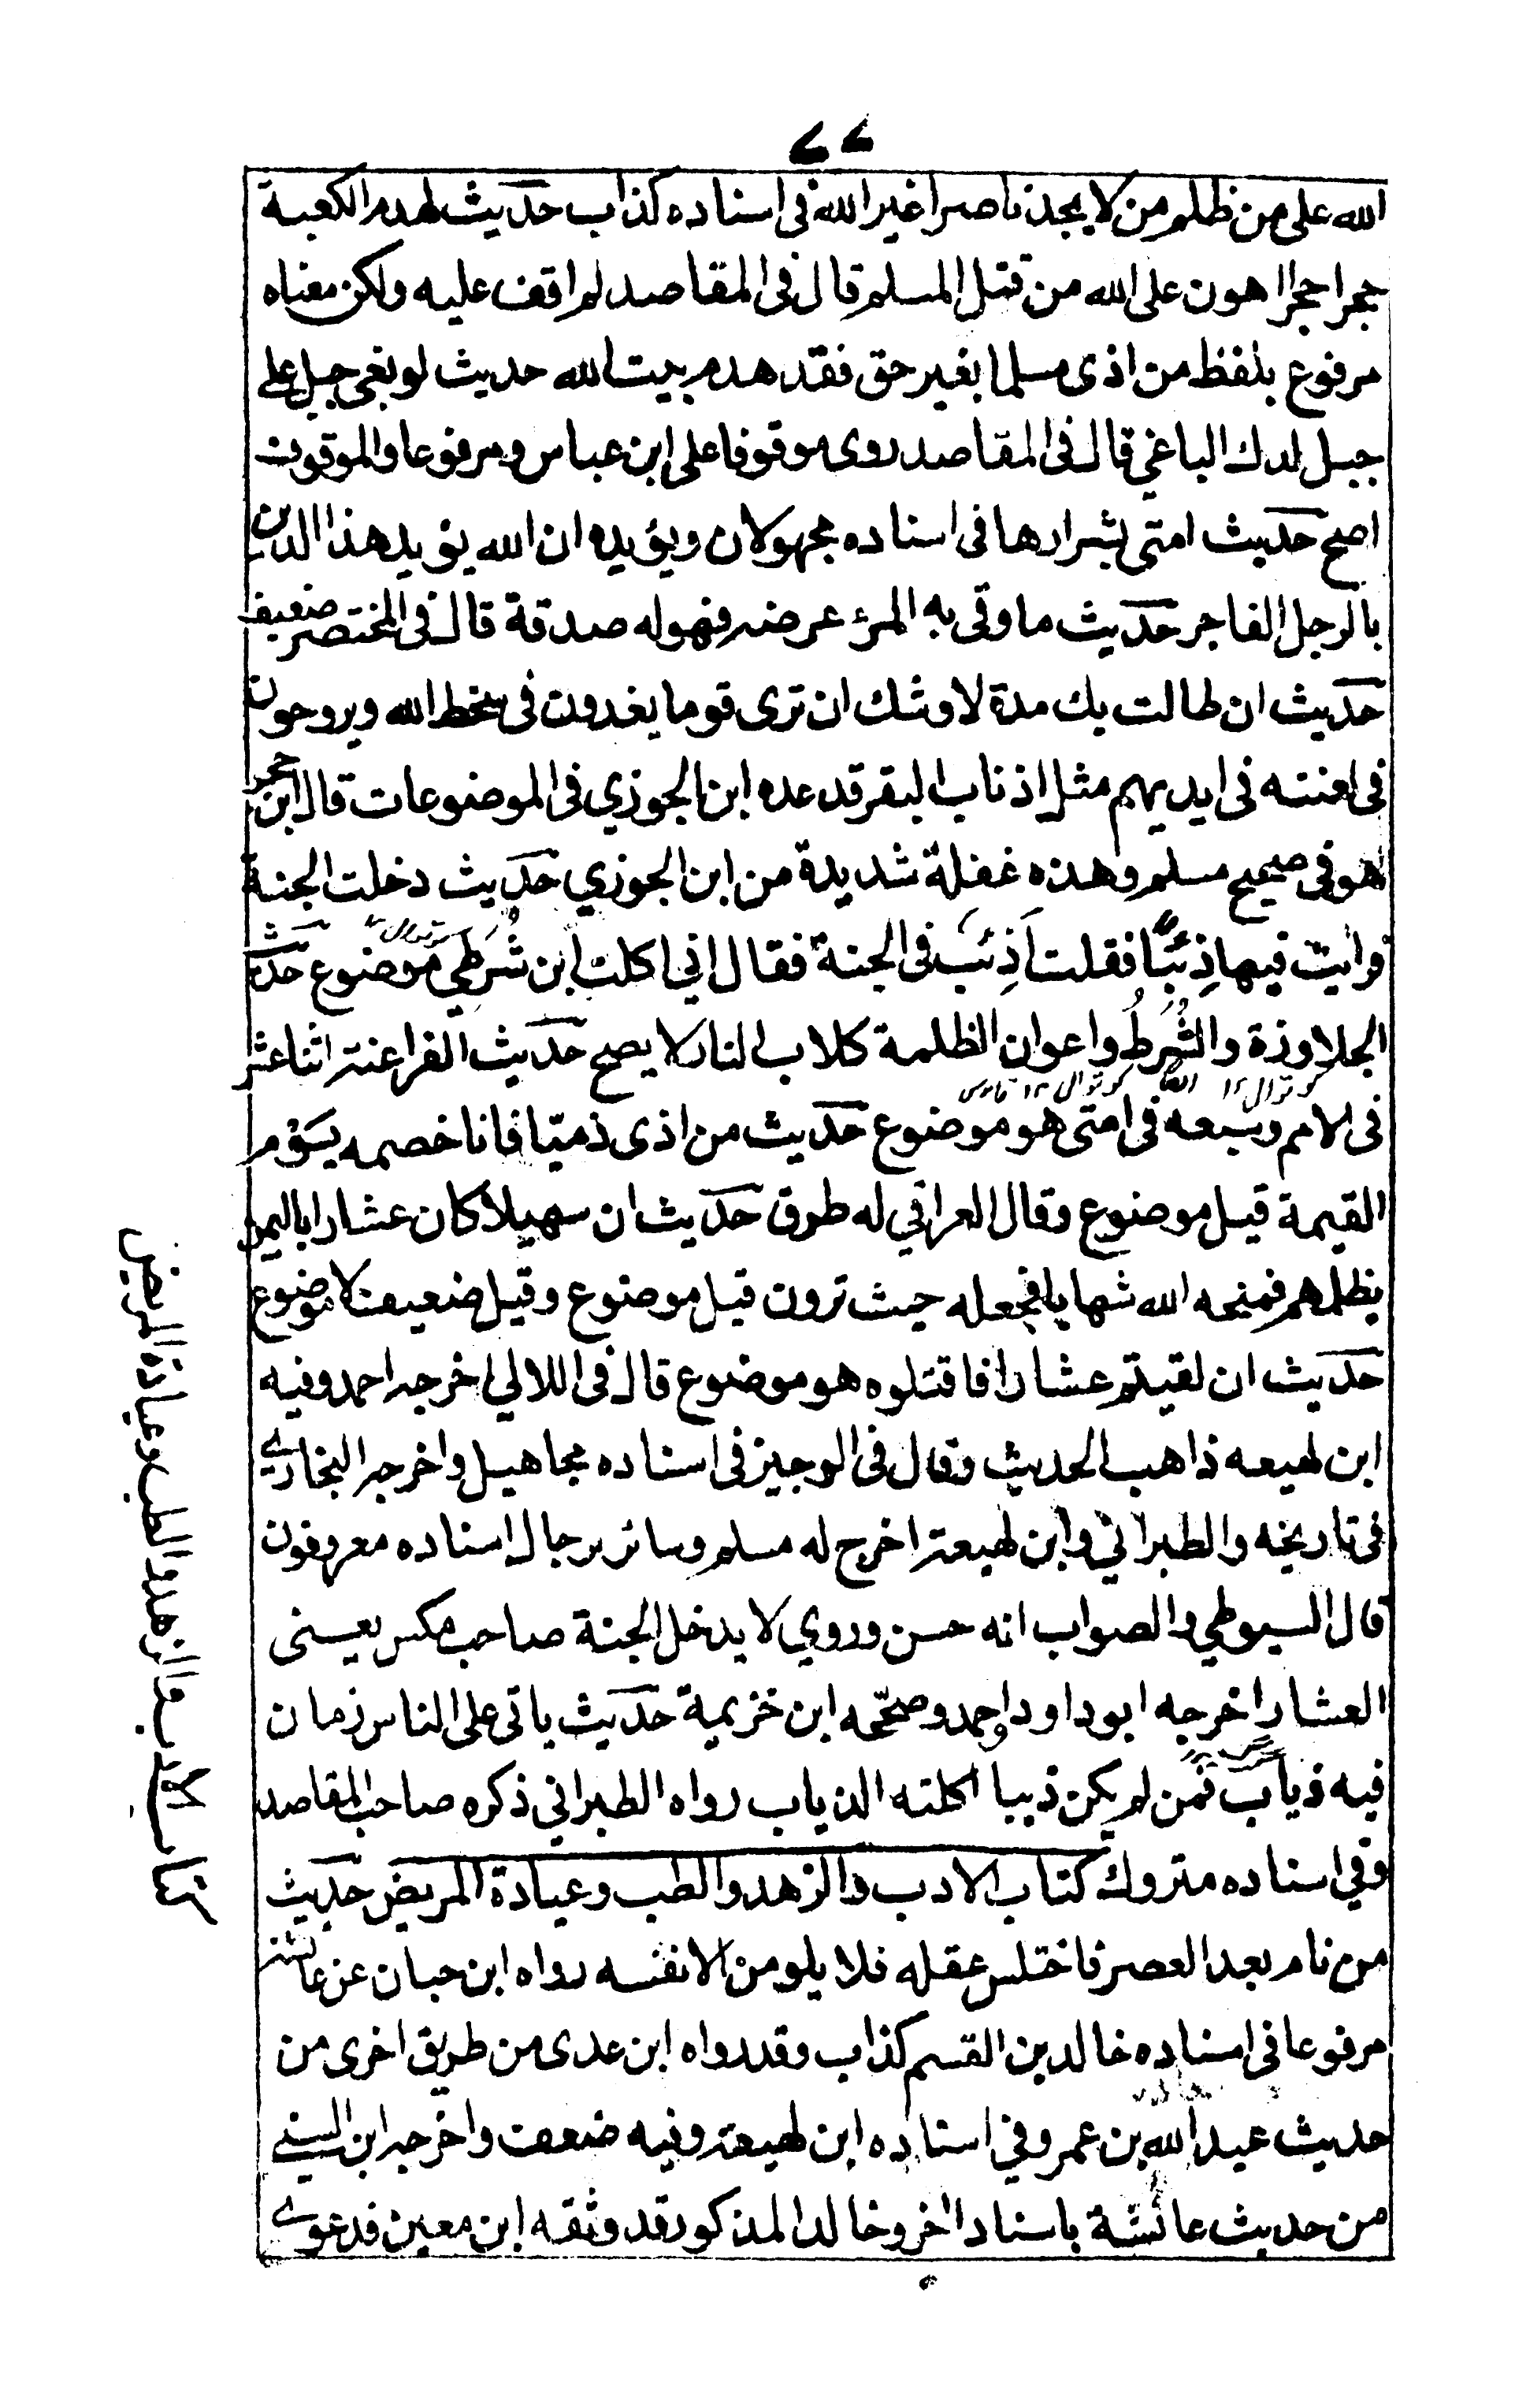 ٧٧
الله على من ظلم من لا يجد ناصرا غير الله فى اسناده كذاب حديث لهدم الكعبة
حجرا حجرا اهون على الله من قتل المسلم قال فى المقاصد لم اقف عليه ولكن معناه
مرفوع بلفظ من اذى مسلما بغير حق فقد هدم بيت الله حديث لو بغى جبل على
جبل لدك الباغي قال فى المقاصد روى موقوفا على ابن عباس ومرفوعا والموقوف
اصح حديث امتى بشرارها فى اسناده مجهولان ويؤيده ان الله يؤيد هذا الدين
بالرجل الفاجر حديث ما وقى به المرء عرضه فهو له صدقة قال فى المختصر ضعيف
حديث ان طالت بك مدة لاوشك ان ترى قوما يغدون فى سخط الله ويروحون
فى لعنته فى ايديهم مثل اذناب البقر قد عده ابن الجوزي فى الموضوعات قال ابن حجر
هو فى صحيح مسلم وهذه غفلة شديدة من ابن الجوزي حديث دخلت الجنة
فرايت فيها ذِئبًا فقلت أَذِئب فى الجنة فقال اني اكلت ابن شُرَطي موضوع حديث
الجلاوزة والشُرَطُ واعوان الظلمة كلاب النار لا يصح حديث الفراعنة اثنا عشر
كوتوال ١٢ كوتوال ١٢
فى الامم وسبعه فى امتى هو موضوع حديث من اذى ذميّا فانا خصمه يوم
القيمة قيل موضوع وقال العراقي له طرق حديث ان سهيلا كان عشارا باليمن
يظلمهم فمنحه الله شهابا فجعله حيث ترون قيل موضوع وقيل ضعيف لا موضوع
حديث ان لقيتم عشارا فاقتلوه هو موضوع قال فى اللالي اخرجه احمد وفيه
ابن لهيعه ذاهب الحديث وقال فى الوجيز فى اسناده مجاهيل واخرجه البخاري
فى تاريخه والطبراني وابن لهيعة اخرج له مسلم وسائر رجال اسناده معروفون
قال السيوطي والصواب انه حسن وروي لا يدخل الجنة صاحب مكس يعنى
العشار اخرجه ابوداود واحمد وصحّحه ابن خزيمة حديث ياتى على الناس زمان
فيه ذياب فمن لم يكن ذيبا اكلته الذياب رواه الطبراني ذكره صاحب المقاصد
وفي اسناده متروك كتاب الادب والزهد والطب وعيادة المريض حديث
من نام بعد العصر فاختلس عقله فلا يلومن الا نفسه رواه ابن حبان عن عائشة
مرفوعا فى اسناده خالد بن القسم كذاب وقد رواه ابن عدى من طريق اخرى من
حديث عبد الله بن عمرو في اسناده ابن لهيعة وفيه ضعف واخرجه ابن السني
من حديث عائشة باسناد اخر وخالد المذكور قد وثقه ابن معين فدعوى
كتاب الادب والزهد والطب وعيادة المريض